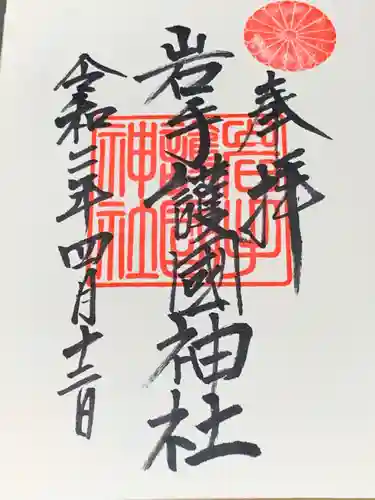 奉拝
岩手護國神社
令和三年四月十二日
岩手護國神社